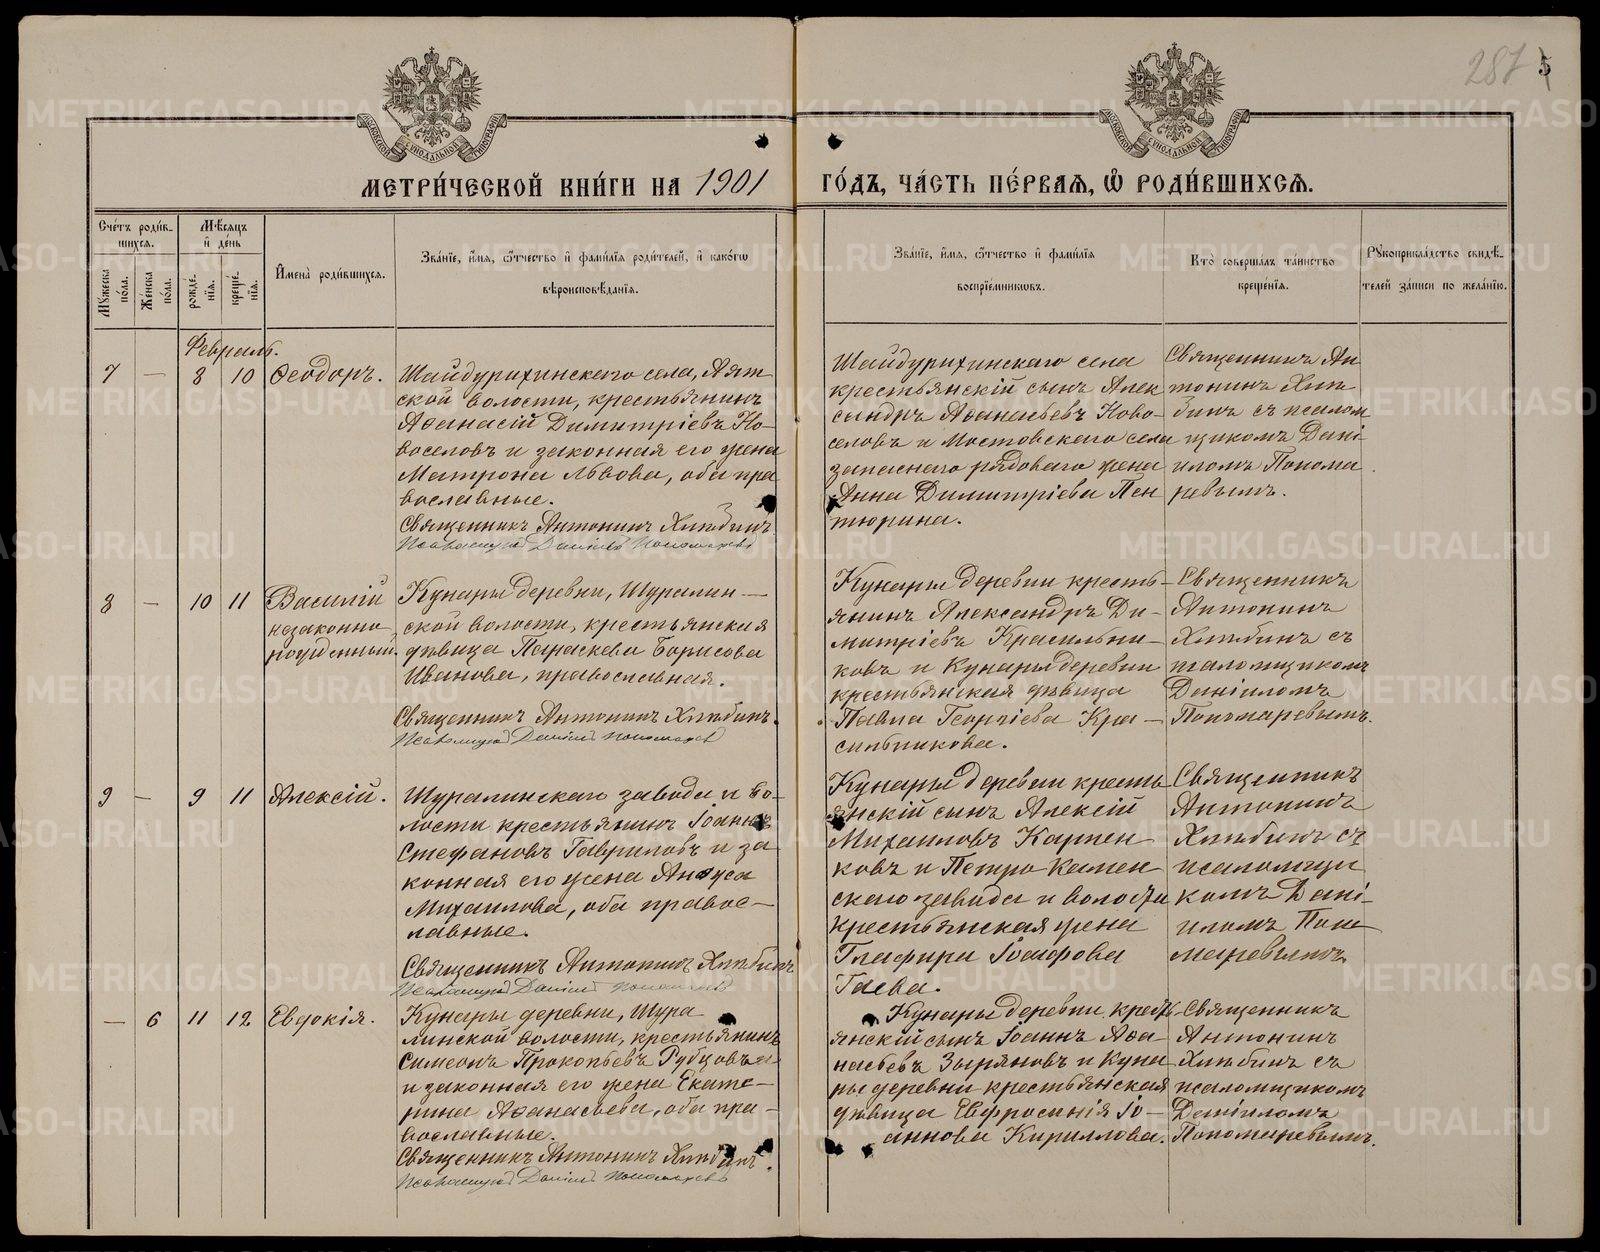 287 5
МОСКОВСКОЙ СѴНОДАЛЬНОЙ ТИПОГРАФІИ
МОСКОВСКОЙ СѴНОДАЛЬНОЙ ТИПОГРАФІИ
МЕТРИ́ЧЕСКОЙ КНИ́ГИ НА 1901 ГО́ДЪ, ЧА́СТЬ ПЕ́РВАЯ, Ѡ҆ РОДИ́ВШИХСЯ.
Сче́тъ роди́в-
шихся.
Мѣ́сяцъ
и҆ де́нь
Мꙋ́жеска по́ла.
Же́нска по́ла.
рожде́нїя.
креще́нїя.
И҆мена̀ роди́вшихся.
Зва́нїе, и҆́мя, ѻ҆́тчество и҆ фами́лїя роди́телей, и҆ како́гѡ
вѣроисповѣ́данїя.
Зва́нїе, и҆́мя, ѻ҆́тчество и҆ фами́лїя
воспрїе́мникѡвъ.
Кто̀ соверша́лъ та́инство
креще́нїя.
Рꙋкоприкла́дство свидѣ́-
телей за́писи по жела́нїю.
Февраль.
7 — 8 10 Ѳеодоръ.
Шайдурихинскаго села, Аят
ской волости, крестьянинъ
Аѳанасій Димитріевъ Но-
воселовъ и законная его жена
Матрона Львова, оба пра
вославные.
Священникъ Антонинъ Хлѣбинъ
Псаломщикъ Даніилъ Пономаревъ
Шайдурихинскаго села
крестьянскій сынъ Алек
сандръ Аѳанасьевъ Ново-
селовъ и Мостовскаго села
запаснаго рядоваго жена
Анна Димитріева Пен
тюрина.
Священникъ Ан
тонинъ Хлѣ
бинъ съ псалом
щикомъ Дані-
иломъ Понома
ревымъ.
8 — 10 11 Василій
незаконно-
рожденный.
Кунары деревни, Шуралин-
ской волости, крестьянская
дѣвица Параскева Борисова
Иванова, православная.
Священникъ Антонинъ Хлѣбинъ.
Псаломщикъ Даніилъ Пономаревъ
Кунары деревни кресть-
янинъ Александръ Ди-
митріевъ Красильни-
ковъ и Кунары деревни
крестьянская дѣвица
Павла Георгіева Кра-
сильникова.
Священникъ
Антонинъ
Хлѣбинъ съ
псаломщикомъ
Даніиломъ
Пономаревымъ.
9 — 9 11 Алексій.
Шуралинскаго завода и во-
лости крестьянинъ Іоаннъ
Стефановъ Гавриловъ и за
конная его жена
Михаилова, оба правос-
лавные.
Священникъ Антонинъ Хлѣбинъ
Псаломщикъ Даніилъ Пономаревъ
Кунары деревни кресть
янскій сынъ Алексій
Михаиловъ Карпен
ковъ и Петро Камен
скаго завода и волости
крестьянская жена
Глафира Іоасафова
Гаева.
Священникъ
Антонинъ
Хлѣбинъ съ
псаломщи
комъ Дані-
иломъ Поно
маревымъ
— 6 11 12 Евдокія.
Кунары деревни, Шура
линской волости, крестьянинъ
Симеонъ Прокопьевъ Рубцовъ
и законная его жена Екате-
рина Аѳанасьева, оба пра-
вославные.
Священникъ Антонинъ Хлѣбинъ.
Псаломщикъ Даніилъ Пономаревъ
Кунары деревни, кресть
янскій сынъ Іоаннъ Аѳа-
насьевъ Зыряновъ и Куна
ры деревни крестьянская
дѣвица Евфросинія Іо-
аннова Кириллова.
Священникъ
Антонинъ
Хлѣбинъ съ
псаломщикомъ
Даніиломъ
Пономаревымъ.
METRIKI.GASO-URAL.RU